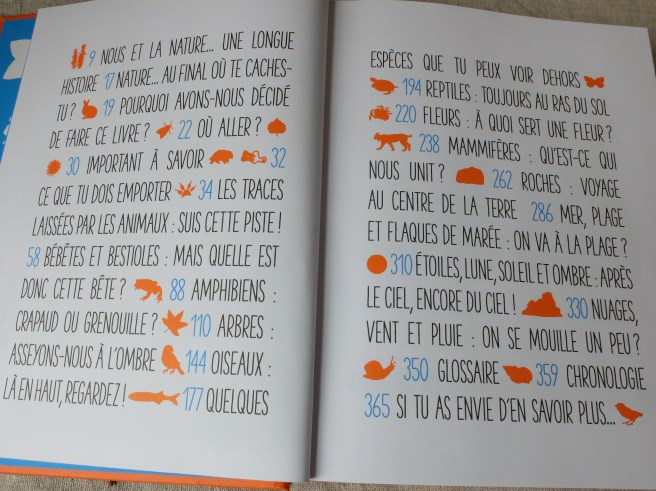 9 NOUS ET LA NATURE... UNE LONGUE
HISTOIRE 17 NATURE... AU FINAL OÙ TE CACHES-
TU ? 19 POURQUOI AVONS-NOUS DÉCIDÉ
DE FAIRE CE LIVRE ? 22 OÙ ALLER ?
30 IMPORTANT À SAVOIR 32
CE QUE TU DOIS EMPORTER 34 LES TRACES
LAISSÉES PAR LES ANIMAUX : SUIS CETTE PISTE !
58 BÉBÊTES ET BESTIOLES : MAIS QUELLE EST
DONC CETTE BÊTE ? 88 AMPHIBIENS :
CRAPAUD OU GRENOUILLE ? 110 ARBRES :
ASSEYONS-NOUS À L'OMBRE 144 OISEAUX :
LÀ EN HAUT, REGARDEZ ! 177 QUELQUES
ESPÈCES QUE TU PEUX VOIR DEHORS
194 REPTILES : TOUJOURS AU RAS DU SOL
220 FLEURS : À QUOI SERT UNE FLEUR ?
238 MAMMIFÈRES : QU'EST-CE QUI
NOUS UNIT ? 262 ROCHES : VOYAGE
AU CENTRE DE LA TERRE 286 MER, PLAGE
ET FLAQUES DE MARÉE : ON VA À LA PLAGE ?
310 ÉTOILES, LUNE, SOLEIL ET OMBRE : APRÈS
LE CIEL, ENCORE DU CIEL ! 330 NUAGES,
VENT ET PLUIE : ON SE MOUILLE UN PEU ?
350 GLOSSAIRE 359 CHRONOLOGIE
365 SI TU AS ENVIE D'EN SAVOIR PLUS...